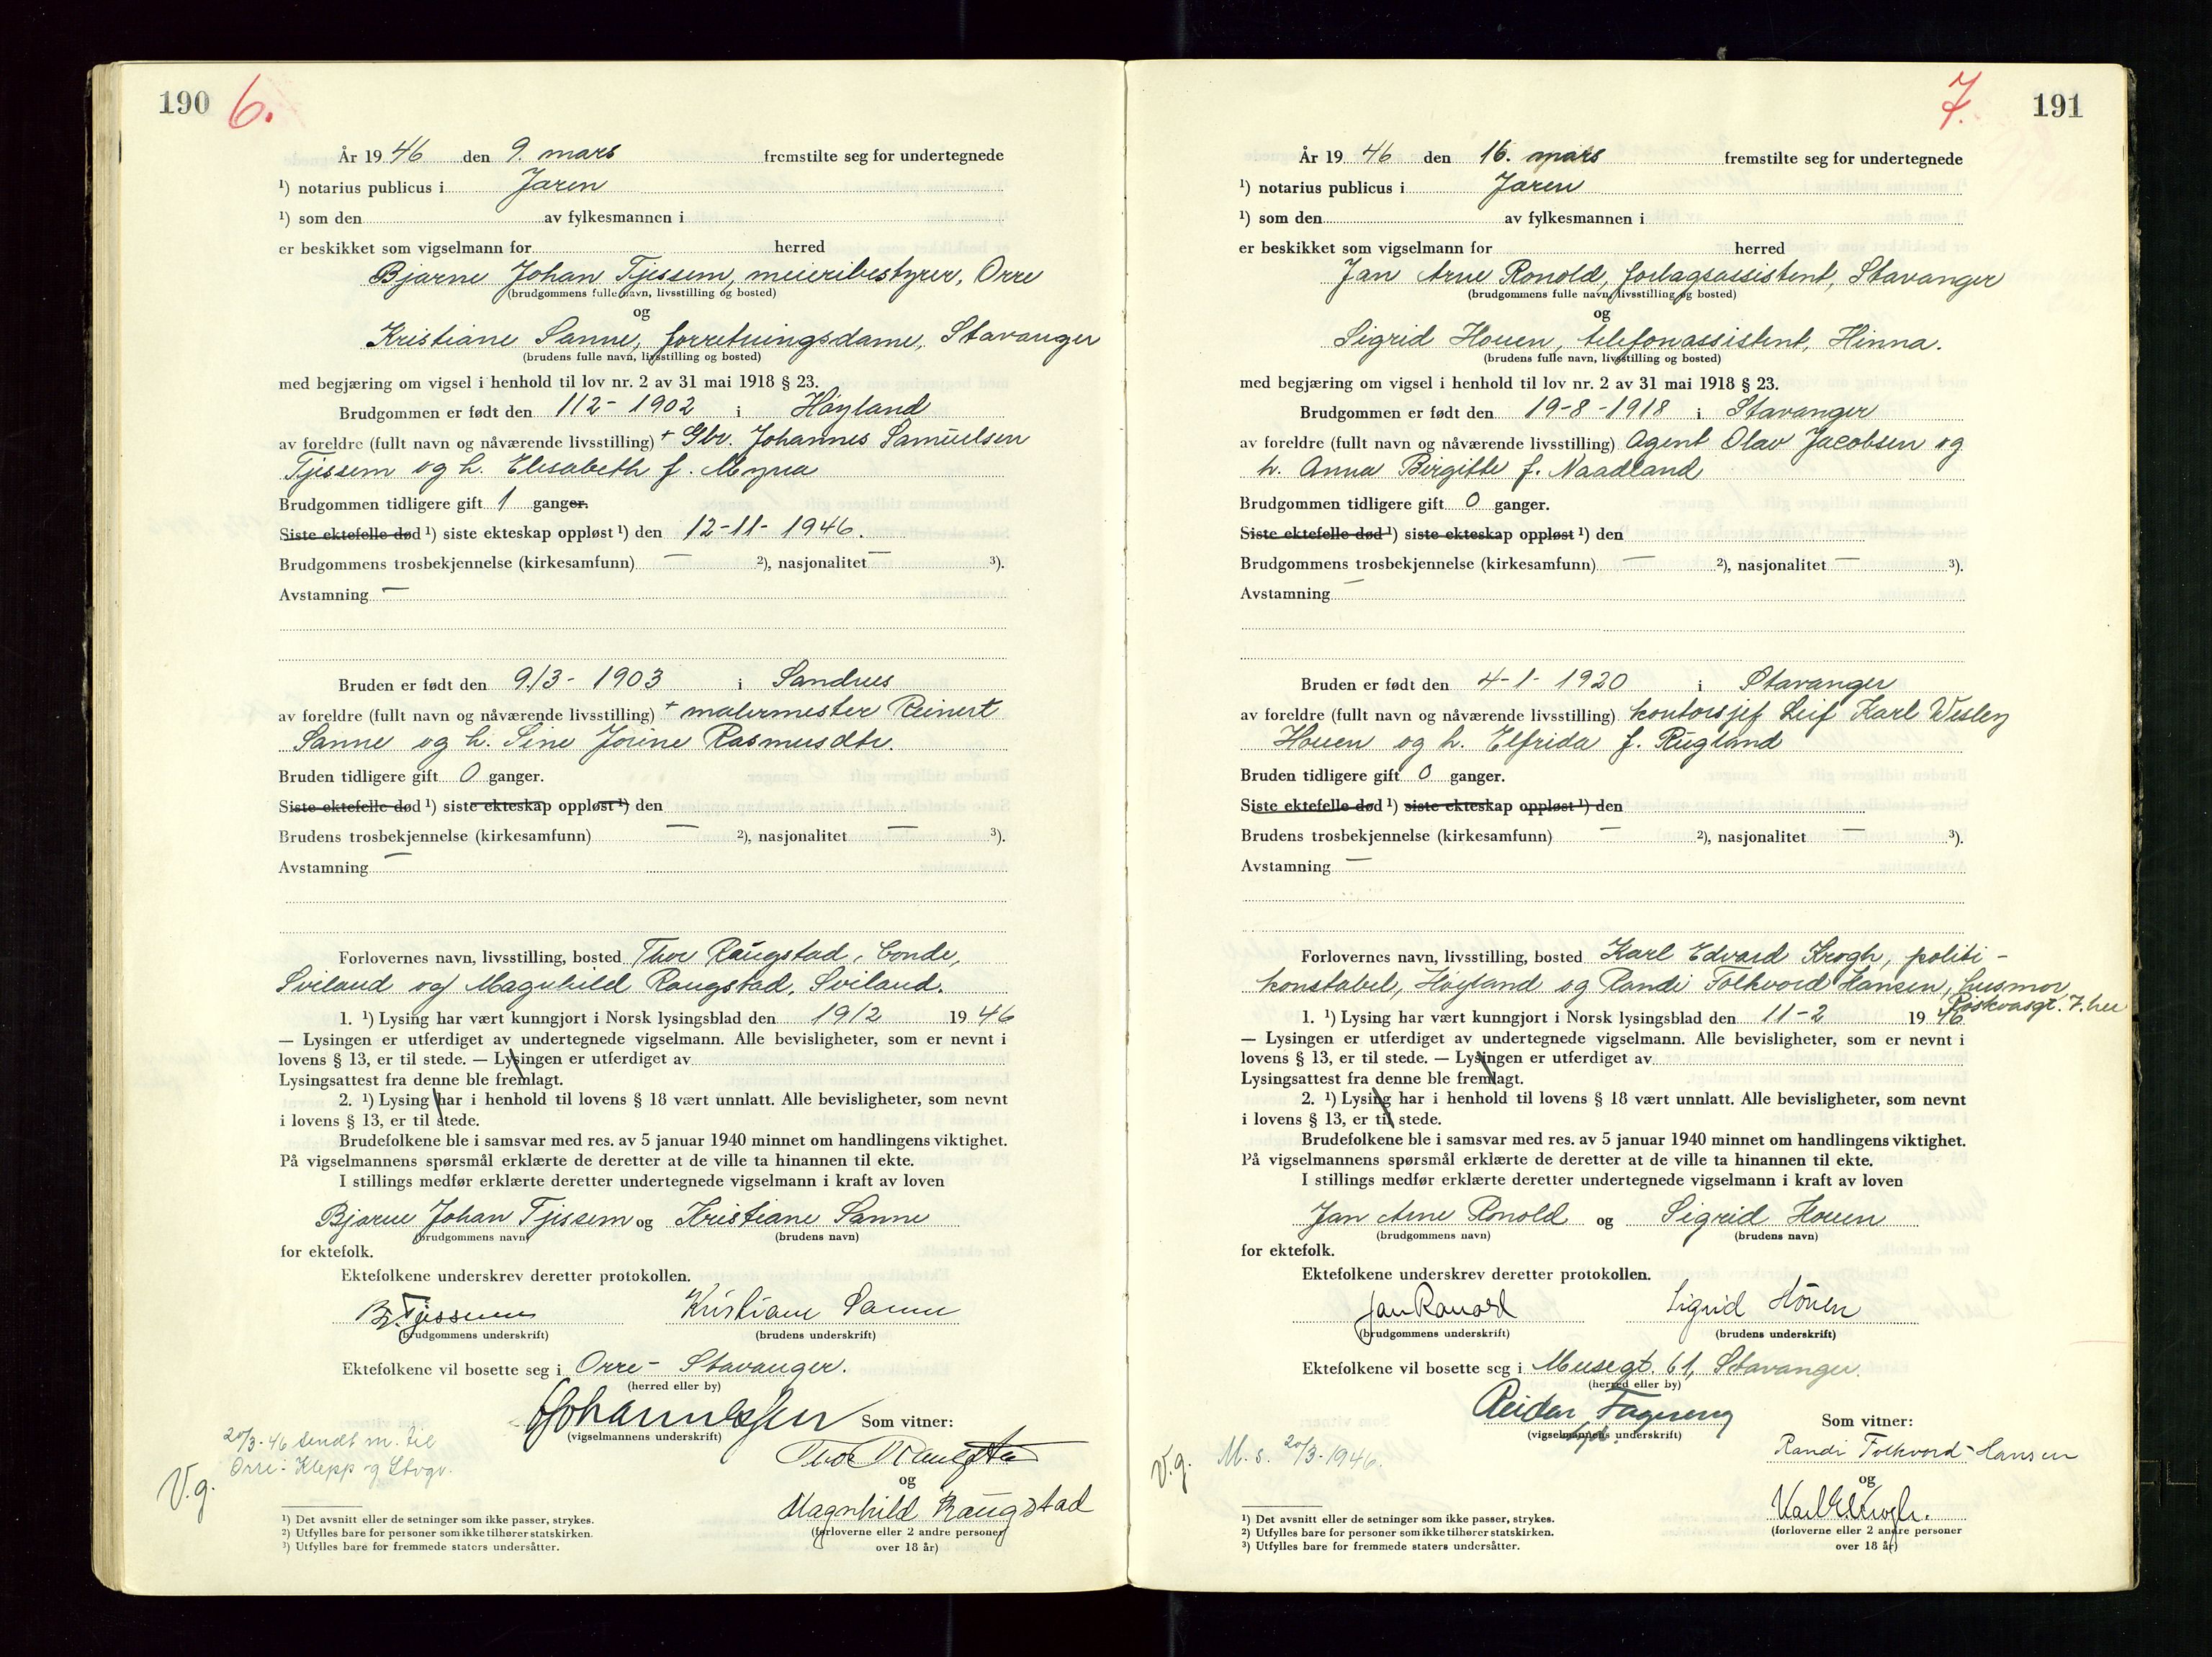 190 6.
År 1946 den 9. mars fremstilte seg for undertegnede
¹) notarius publicus i Jæren
¹) som den av fylkesmannen i
er beskikket som vigselmann for herred
Bjarne Johan Tjessem, meieribestyrer, Orre
(brudgommens fulle navn, livsstilling og bosted)
og
Kristiane Sanne, forretningsdame, Stavanger
(brudens fulle navn, livsstilling og bosted)
med begjæring om vigsel i henhold til lov nr. 2 av 31 mai 1918 § 23.
Brudgommen er født den 1/12- 1902 i Høyland
av foreldre (fullt navn og nåværende livsstilling) + Gbr. Johannes Samuelsen
Tjessem og h. Elisabeth f. Myra
Brudgommen tidligere gift 1 ganger.
Siste ektefelle død ¹) siste ekteskap oppløst ¹) den 12-11- 1946.
Brudgommens trosbekjennelse (kirkesamfunn) — ²), nasjonalitet — ³).
Avstamning —
Bruden er født den 9/3- 1903 i Sandnes
av foreldre (fullt navn og nåværende livsstilling) + malermester Reinert
Sanne og h. Sine Jorine Rasmusdtr.
Bruden tidligere gift 0 ganger.
Siste ektefelle død ¹) siste ekteskap oppløst ¹) den
Brudens trosbekjennelse (kirkesamfunn) — ²), nasjonalitet — ³).
Avstamning —
Forlovernes navn, livsstilling, bosted Thor Raugstad, bonde,
Sviland og Magnhild Raugstad, Sviland.
1. ¹) Lysing har vært kunngjort i Norsk lysingsblad den 19/2 1946
— Lysingen er utferdiget av undertegnede vigselmann. Alle bevisligheter, som er nevnt i
lovens § 13, er til stede. — Lysingen er utferdiget av
Lysingsattest fra denne ble fremlagt.
2. ¹) Lysing har i henhold til lovens § 18 vært unnlatt. Alle bevisligheter, som nevnt
i lovens § 13, er til stede.
Brudefolkene ble i samsvar med res. av 5 januar 1940 minnet om handlingens viktighet.
På vigselmannens spørsmål erklærte de deretter at de ville ta hinannen til ekte.
I stillings medfør erklærte deretter undertegnede vigselmann i kraft av loven
Bjarne Johan Tjessem og Kristiane Sanne
(brudgommens navn) (brudens navn)
for ektefolk.
Ektefolkene underskrev deretter protokollen.
B. Tjessem Kristiane Sanne
(brudgommens underskrift) (brudens underskrift)
Ektefolkene vil bosette seg i Orre- Stavanger.
(herred eller by)
Johannessen Som vitner:
(vigselmannens underskrift)
20/3-46 sendt m. til
Orre- Klepp og Stvgr.
V.g.
Thor Raugstad
og
Magnhild Raugstad
(forloverne eller 2 andre personer
over 18 år)
¹) Det avsnitt eller de setninger som ikke passer, strykes.
²) Utfylles bare for personer som ikke tilhører statskirken.
³) Utfylles bare for fremmede staters undersåtter.
7. 191
År 1946 den 16. mars fremstilte seg for undertegnede
¹) notarius publicus i Jæren
¹) som den av fylkesmannen i
er beskikket som vigselmann for herred
Jan Arne Ronold, forlagsassistent, Stavanger
(brudgommens fulle navn, livsstilling og bosted)
og
Sigrid Houen, telefonassistent, Hinna.
(brudens fulle navn, livsstilling og bosted)
med begjæring om vigsel i henhold til lov nr. 2 av 31 mai 1918 § 23.
Brudgommen er født den 19-8-1918 i Stavanger
av foreldre (fullt navn og nåværende livsstilling) Agent Olav Jacobsen og
h. Anna Bergitte f. Naadland
Brudgommen tidligere gift 0 ganger.
Siste ektefelle død ¹) siste ekteskap oppløst ¹) den
Brudgommens trosbekjennelse (kirkesamfunn) — ²), nasjonalitet — ³).
Avstamning —
Bruden er født den 4-1- 1920 i Stavanger
av foreldre (fullt navn og nåværende livsstilling) kontorsjef Leif Karl Wesley
Houen og h. Elfrida f. Rugland
Bruden tidligere gift 0 ganger.
Siste ektefelle død ¹) siste ekteskap oppløst ¹) den
Brudens trosbekjennelse (kirkesamfunn) — ²), nasjonalitet — ³).
Avstamning —
Forlovernes navn, livsstilling, bosted Karl Edvard Krogh, politi-
konstabel, Høyland og Randi Folkvord Hansen, husmor,
1. ¹) Lysing har vært kunngjort i Norsk lysingsblad den 11-2 1946
— Lysingen er utferdiget av undertegnede vigselmann. Alle bevisligheter, som er nevnt i
lovens § 13, er til stede. — Lysingen er utferdiget av
Lysingsattest fra denne ble fremlagt.
2. ¹) Lysing har i henhold til lovens § 18 vært unnlatt. Alle bevisligheter, som nevnt
i lovens § 13, er til stede.
Brudefolkene ble i samsvar med res. av 5 januar 1940 minnet om handlingens viktighet.
På vigselmannens spørsmål erklærte de deretter at de ville ta hinannen til ekte.
I stillings medfør erklærte deretter undertegnede vigselmann i kraft av loven
Jan Arne Ronold og Sigrid Houen
(brudgommens navn) (brudens navn)
for ektefolk.
Ektefolkene underskrev deretter protokollen.
Jan Ronold Sigrid Houen
(brudgommens underskrift) (brudens underskrift)
Ektefolkene vil bosette seg i Musegt. 61, Stavanger.
(herred eller by)
Reidar Fagereng Som vitner:
(vigselmannens underskrift)
V.g. M. s. 20/3-1946.
Randi Folkvord-Hansen
og
Karl E. Krogh.
(forloverne eller 2 andre personer
over 18 år)
¹) Det avsnitt eller de setninger som ikke passer, strykes.
²) Utfylles bare for personer som ikke tilhører statskirken.
³) Utfylles bare for fremmede staters undersåtter.